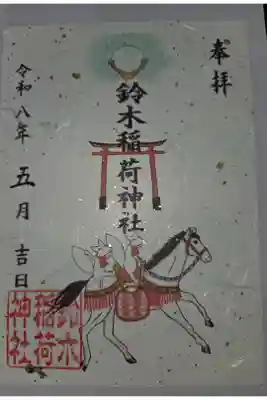 奉拝
鈴木稲荷神社
令和八年
五月吉日
鈴木
稲荷
神社